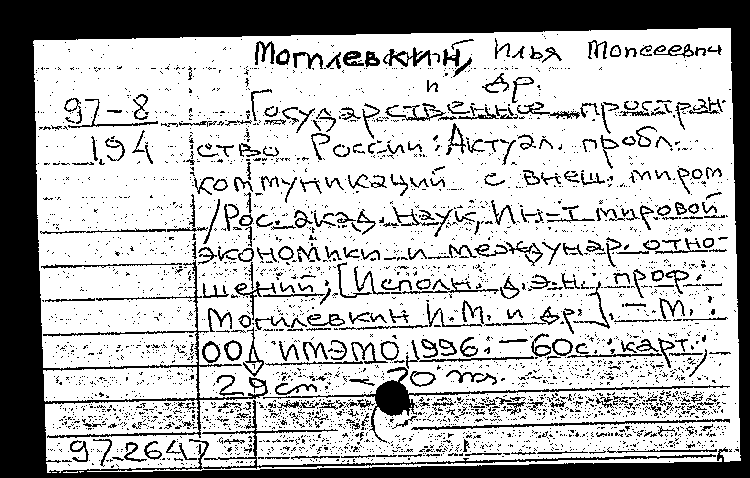 Могилевкин, Илья Моисеевич
и др.
97-8 Государственное простран-
194 ство России: Актуал. пробл.
коммуникаций с внеш. миром
/Рос. акад. наук, Ин-т мировой
экономики и междунар. отно-
шений; [Исполн. д.э.н., проф.
Могилевкин И.М. и др.]. - М.:
ООП ИМЭМО, 1996. - 60с.: карт.;
29 cm. -
97-2647